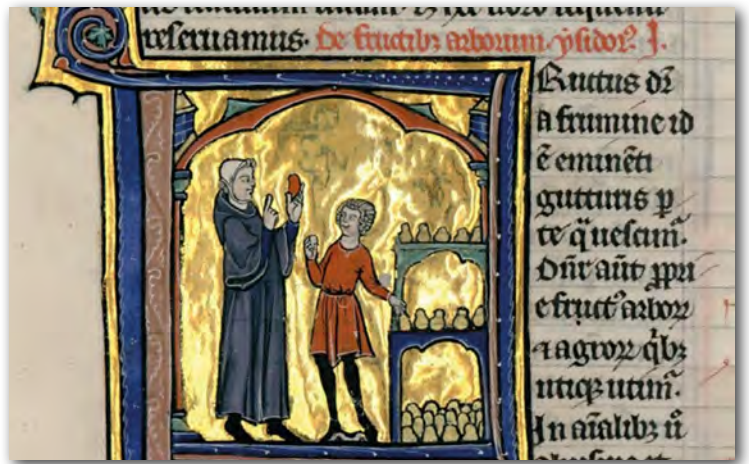 reseruamus. De fructibꝫ arborum. ysidorꝰ. I.
Ructus dr̄
a frumine id
ē eminēti
gutturis p̱
te q̄ uescim̄.
Dn̄r aūt ꝓpri
e fructꝰ arboꝝ
⁊ agroꝝ qͥbꝫ
utiqꝫ utim̄.
In aīalibꝫ ū